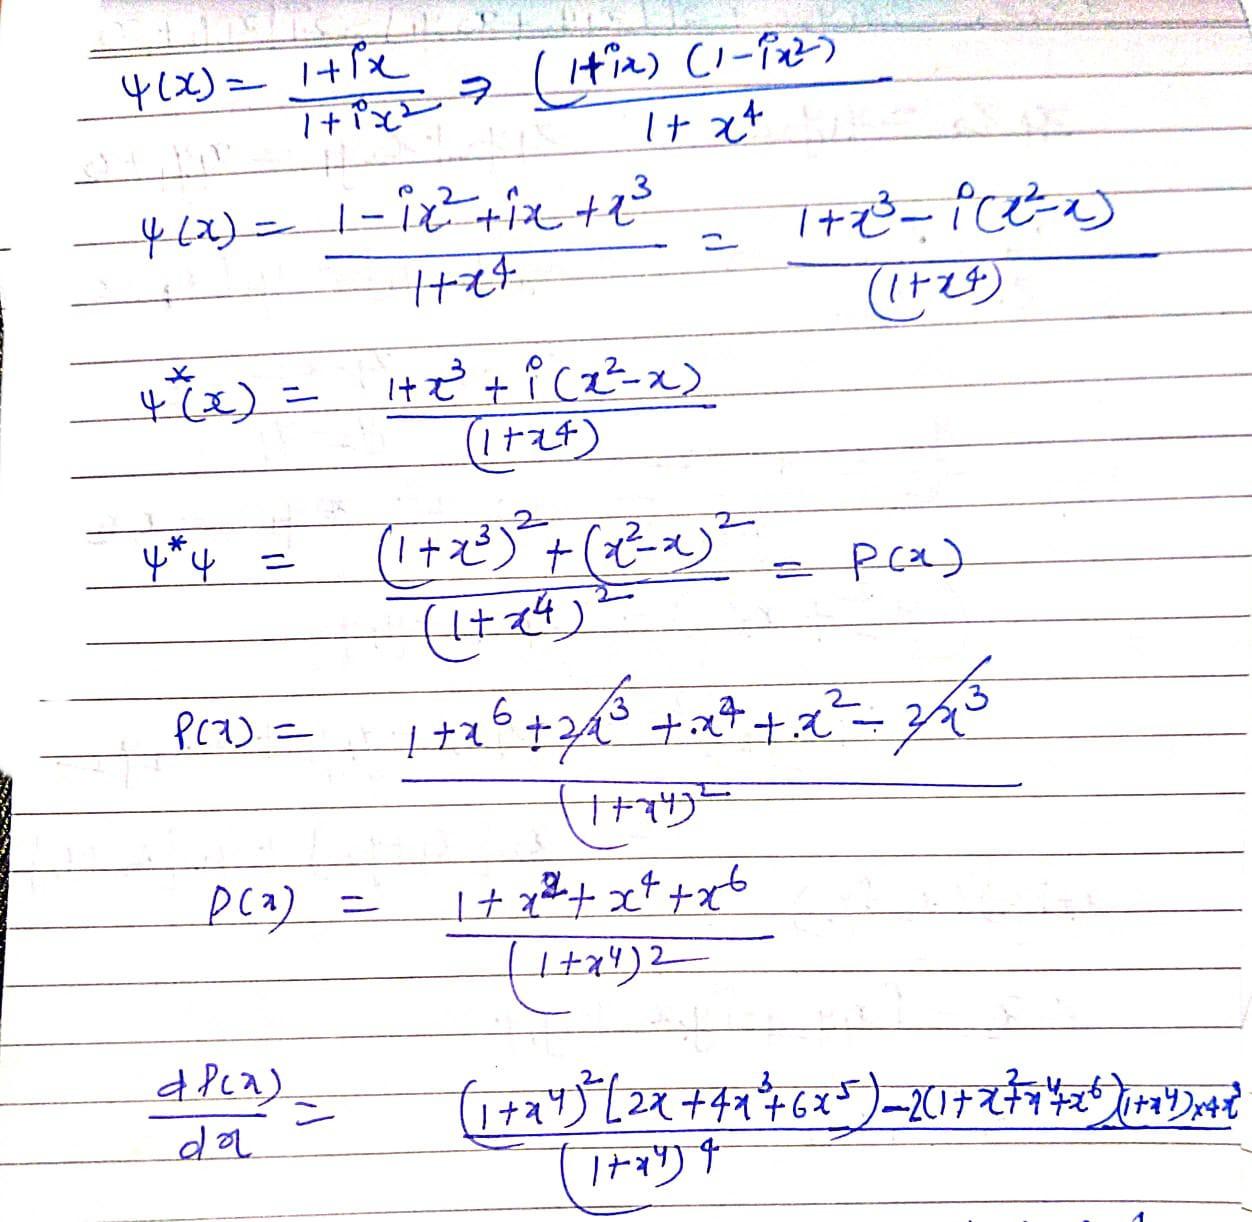 ψ(x) = (1+ix)/(1+ix²) ⇒ ((1+ix) (1-ix²))/(1+x⁴)
ψ(x) = (1-ix²+ix+x³)/(1+x⁴) = (1+x³-i(x²-x))/((1+x⁴))
ψ*(x) = (1+x³+i(x²-x))/((1+x⁴))
ψ*ψ = ((1+x³)²+(x²-x)²)/((1+x⁴)²) = P(x)
P(x) = (1+x⁶+2x³+x⁴+x²-2x³)/((1+x⁴)²)
P(x) = (1+x²+x⁴+x⁶)/((1+x⁴)²)
dP(x)/dx = ((1+x⁴)²[2x+4x³+6x⁵)-2(1+x²+x⁴+x⁶)(1+x⁴)×4x³)/((1+x⁴)⁴)